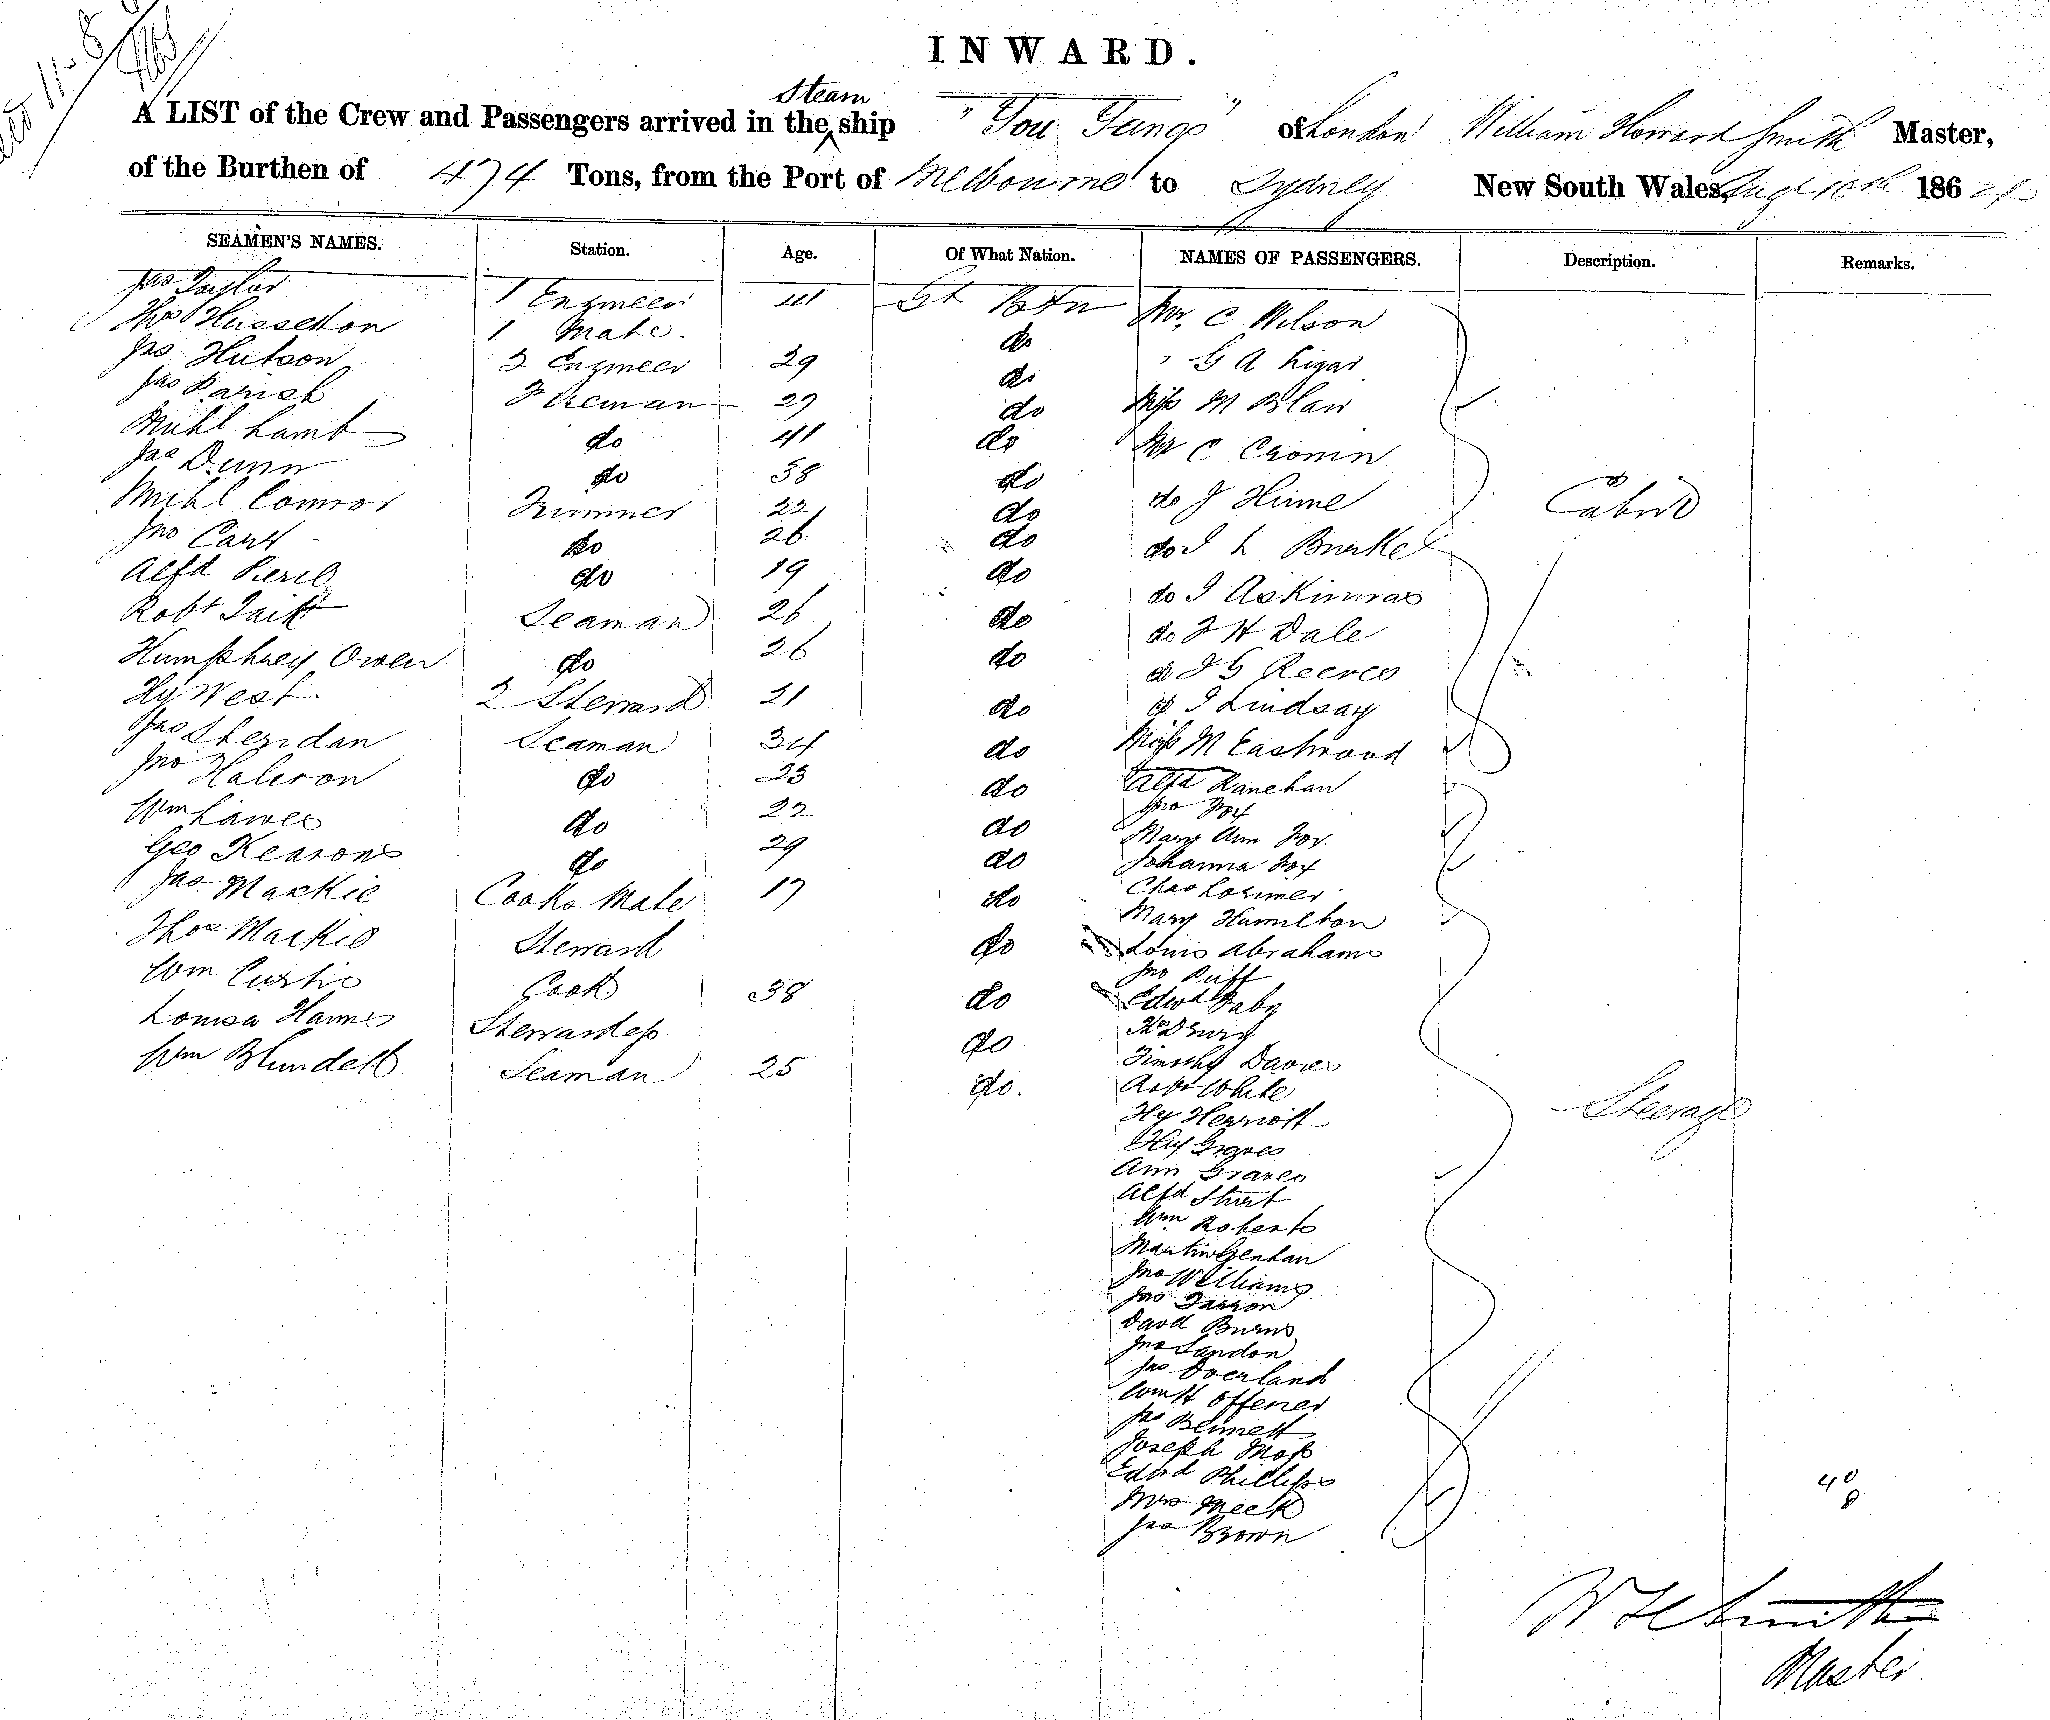 INWARD.
A LIST of the Crew and Passengers arrived in the Steam ship "You Yangs" of London William Howard Smith Master,
of the Burthen of 474 Tons, from the Port of Melbourne to Sydney New South Wales, Augt 10th 186
SEAMEN'S NAMES. Station. Age. Of What Nation. NAMES OF PASSENGERS. Description. Remarks.
Jas Taylor 1 Engineer 41 Gt Britn Mr. C Wilson
Thos 1 Mate. do
Jas Hutson 2 Engineer 29 do " G A
Jas Parish Fireman 29 do Miss M Blair
Michl Lamb do 41 do Mr C Cronin
Jas Dunn do 38 do do J Hime
Michl Connor Trimmer 22 do Cabin
Jno Carr do 26 do do J L Burke
Alfd do 19 do do J
Robt Tait Seaman 26 do do J H Dale
Humphrey Owen do 26 do do J G Reeves
Hy West 2 Steward 21 do do J Lindsay
Jas Sheridan Seaman 34 do Miss M Eastwood
Jno Halcron do 23 do Alfd Ranehan
Jno Fox
Wm Lawes do 22 do Mary Ann Fox
Geo Keasons do 29 do Johanna Fox
Jas Mackie Cooks Mate 17 do Chas Lorimer
Mary Hamilton
Thos Mackie Steward do Louis Abrahams
Jno Ruff
Wm Curtis Cook 38 do Edwd Raby
Louisa Harris Stewardess do
Timothy Davies
Wm Blundell Seaman 25 do. Robt White
Hy Herriott
Steerage
Hy Graves
Ann Graves
Alfd Sturt
Wm Roberts
Martin Genhan
Jno Williams
Jas Farron
David Burns
Jno Landon
Jas Overland
Wm H Offener
Jas Bennett
Joseph Moss
Edwd Phillips
Mrs Meek
Jas Brown
40
8
W H Smith
Master